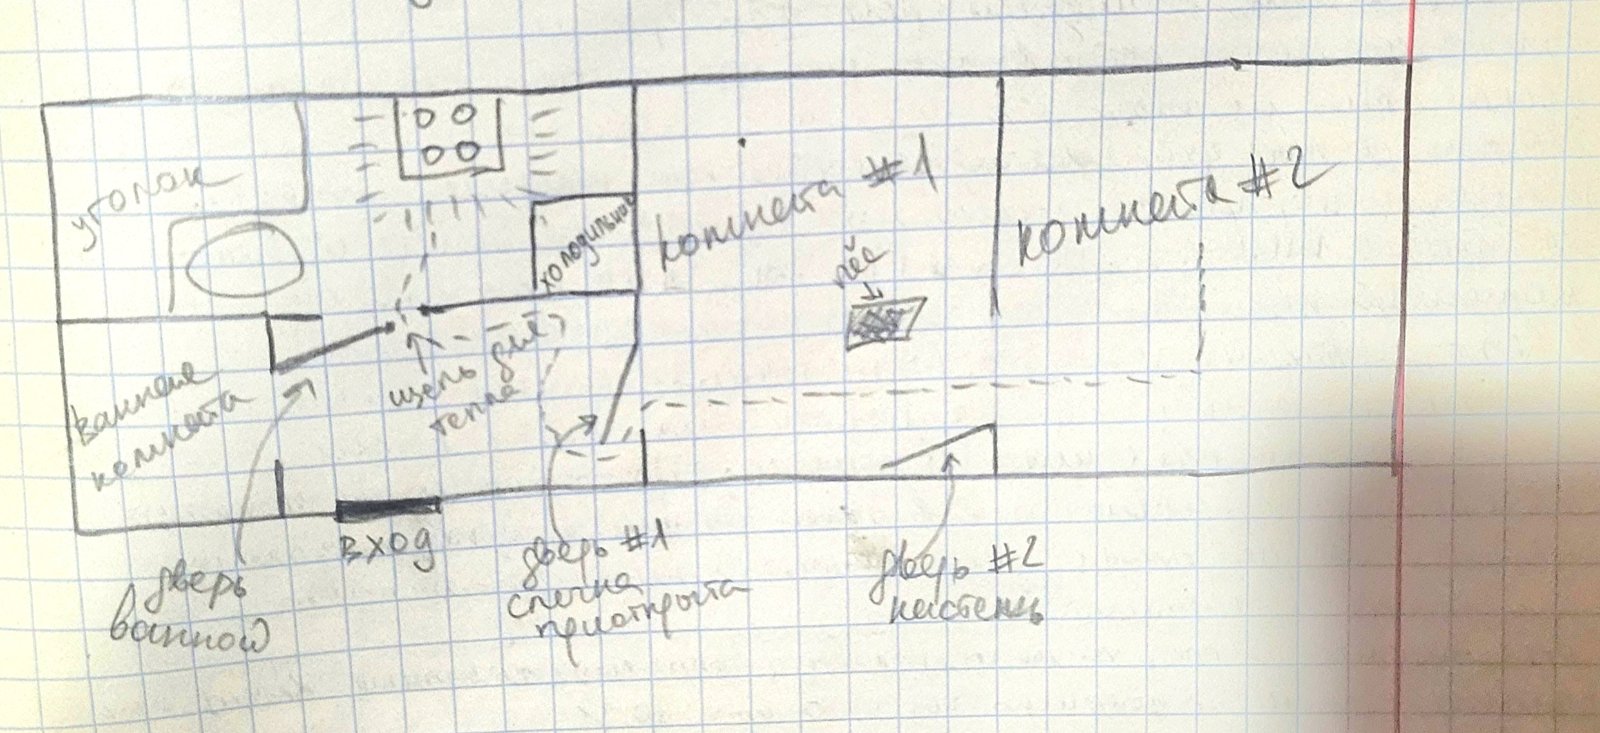 уголок
холодильник
комната #1
комната #2
пёс
щель для
тепла
ванная
комната
вход
дверь
ванной
дверь #1
слегка
приоткрыта
дверь #2
настежь